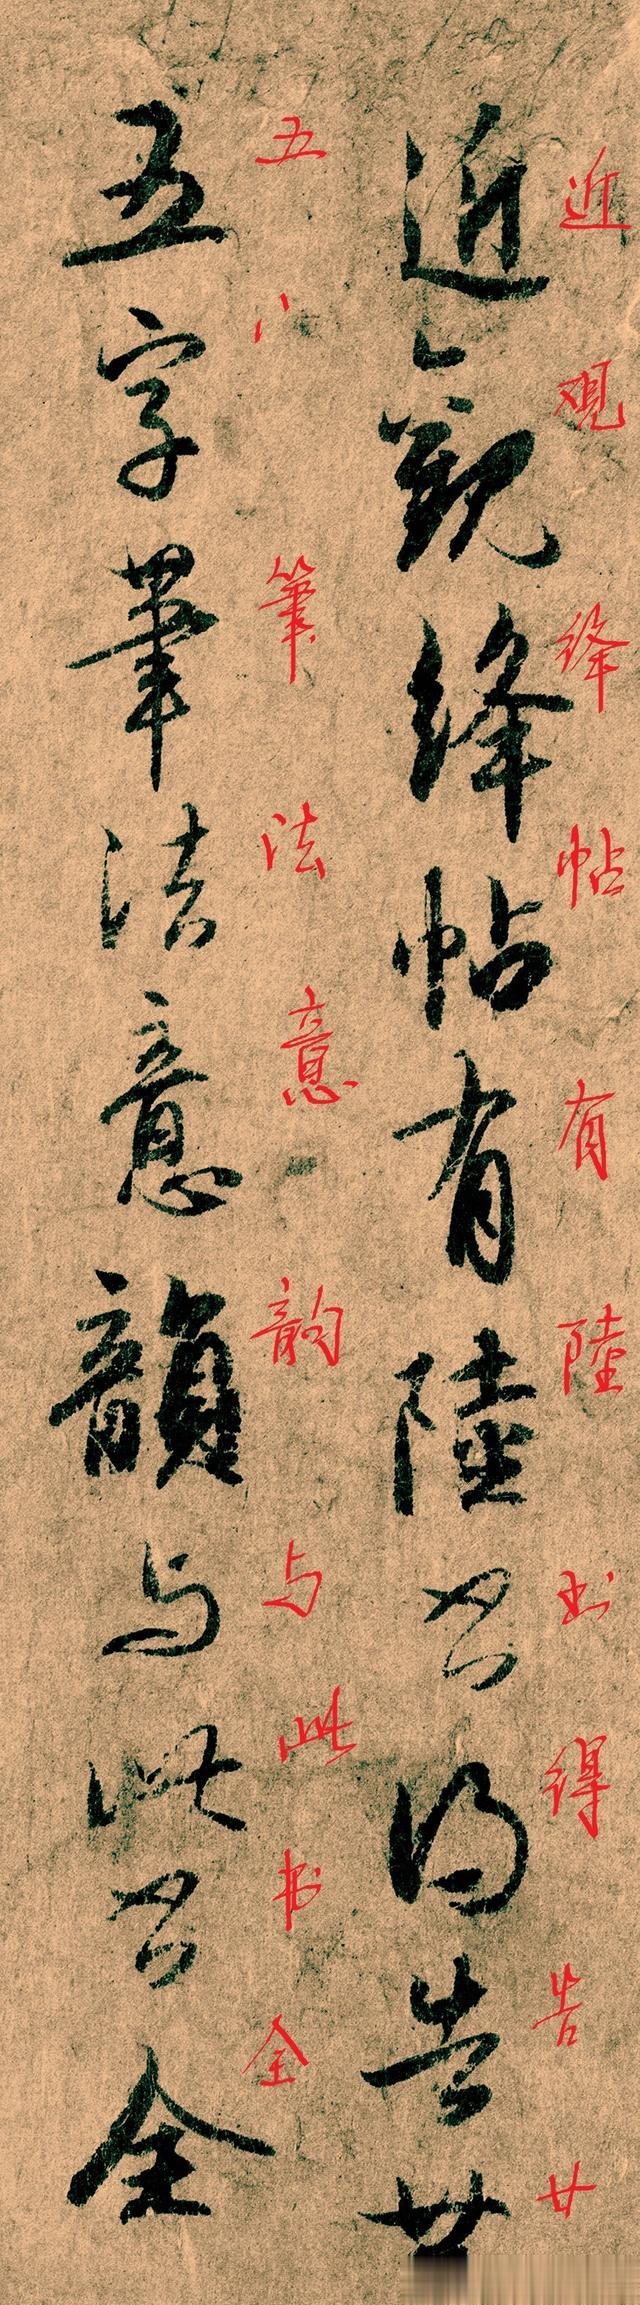 近观绛帖有陸书得告廿
近觀絳帖有陸書得告廿
五筆法意韵与此书全
五字筆法意韻与此書全